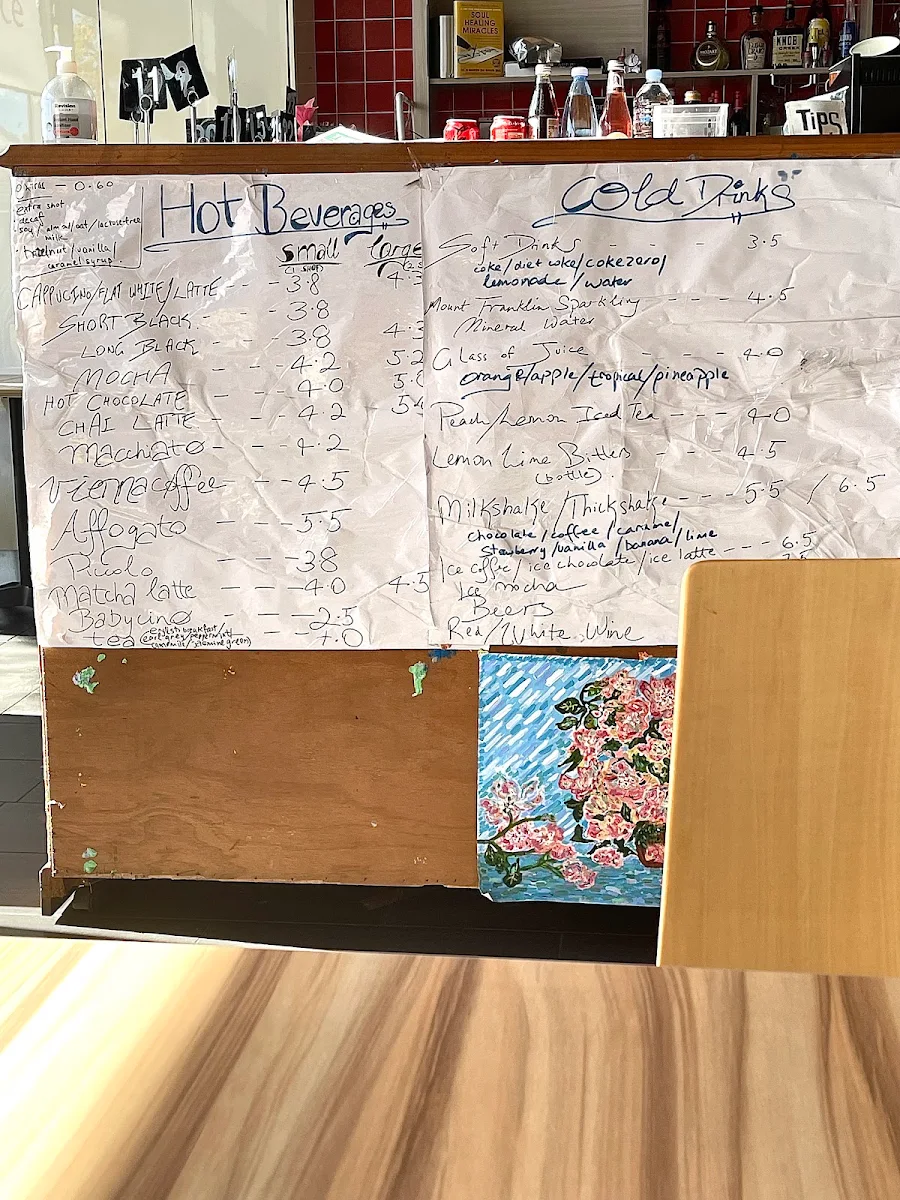 SOUL
HEALING
MIRACLES
11
KNOB
CREEK
TiPS
extras - 0.60
extra shot
decaf
soy/almond/oat/lactose free
milk
hazelnut/vanilla/
caramel syrup.
Hot Beverages
small large
(1 SHOT)
CAPPUCINO/FLAT WHITE/LATTE - - - 3.8 4.3
SHORT BLACK - - - 3.8
LONG BLACK - - - 3.8 4.3
MOCHA - - - 4.2 5.2
HOT CHOCOLATE - - - 4.0
CHAI LATTE - - - 4.2 5.4
Macchiato - - - 4.2
Vienna coffee - - - 4.5
Affogato - - - 5.5
Piccolo - - - 3.8
Matcha latte - - - 4.0 4.5
Babycino - - - 2.5
tea (english breakfast/
earl grey/peppermint/
camomile/jasmine green) - - 4.0
Cold Drinks
Soft Drinks - - - - 3.5
coke/diet coke/coke zero/
lemonade/water
Mount Franklin Sparkling - - - 4.5
Mineral Water
Glass of Juice - - - - 4.0
orange/apple/tropical/pineapple
Peach/Lemon Iced Tea - - - 4.0
Lemon Lime Bitters - - 4.5
(bottle)
Milkshake/Thickshake - - - 5.5 / 6.5
chocolate/coffee/caramel/
Stawberry/vanilla/banana/lime
Ice coffee/ice chocolate/ice latte - - - 6.5
Ice mocha
Beers
Red/White Wine